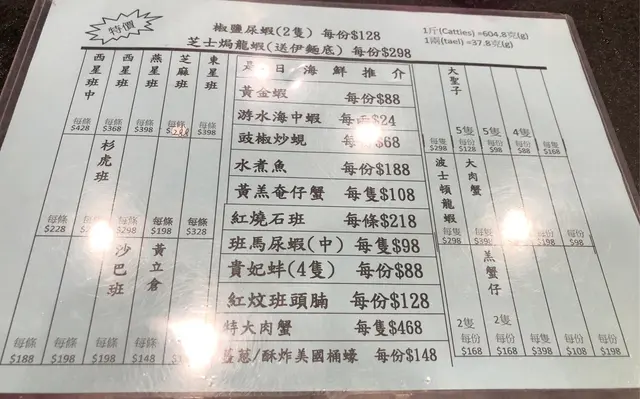 特價
椒鹽尿蝦(2隻) 每份$128
芝士焗龍蝦(送伊麵底) 每份$298
1斤(Catties) =604.8克(g)
1兩(tael) =37.8克(g)
是日海鮮推介
黃金蝦 每份$88
游水海中蝦 $24
豉椒炒蜆 $68
水煮魚 每份$188
黃羔奄仔蟹 每隻$108
紅燒石班 每條$218
班馬尿蝦(中) 每隻$98
貴妃蚌(4隻) 每份$88
紅炆班頭腩 每份$128
特大肉蟹 每隻$468
薑蔥/酥炸美國桶蠔 每份$148
西星班中 每條 $428
西星班 每條 $368
燕星班 每條 $398
芝麻班 每條 $288
東星班 每條 $398
杉虎班
每條 $228
每條
每條 $298
每條 $198
每條 $328
沙巴班
黃立倉
每條 $188
每條 $198
每條 $198
每條 $148
大聖子
每隻 $298
5隻 每份 $128
5隻 每份 $98
4隻 每份 $88
每條 $168
波士頓龍蝦 每隻 $298
大肉蟹
每份 $98
羔蟹仔
2隻 每份 $168
2隻 每份 $168
每隻 $398
每份 $108
每份 $198